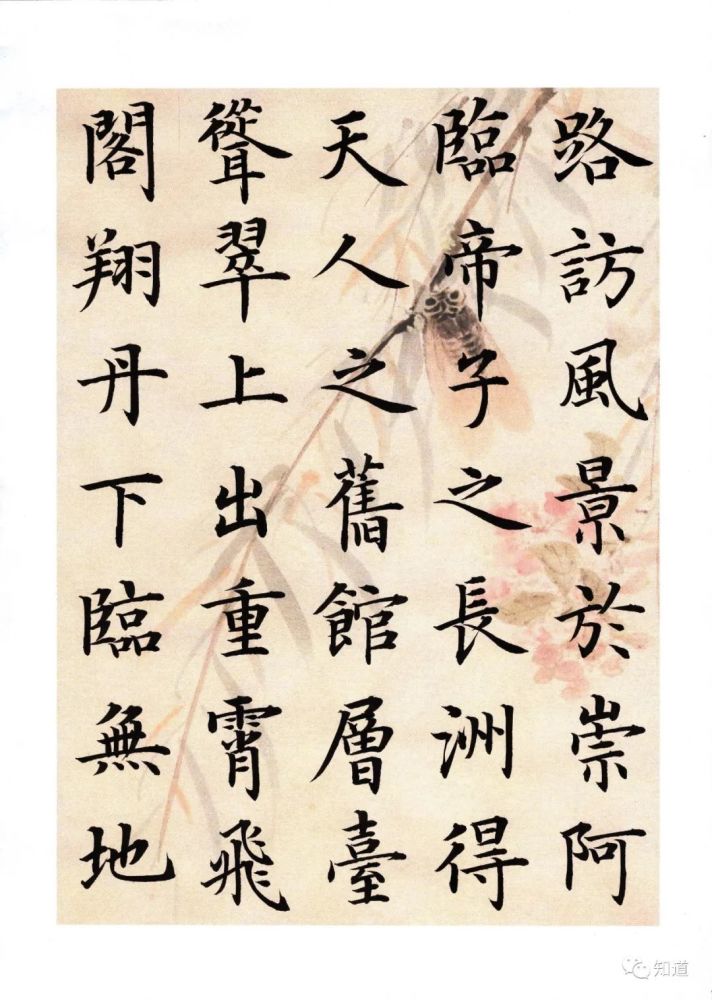 路訪風景於崇阿
臨帝子之長洲得
天人之舊館層臺
聳翠上出重霄飛
閣翔丹下臨無地
知道